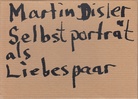 Martin Disler
Selbstporträt
als
Liebespaar